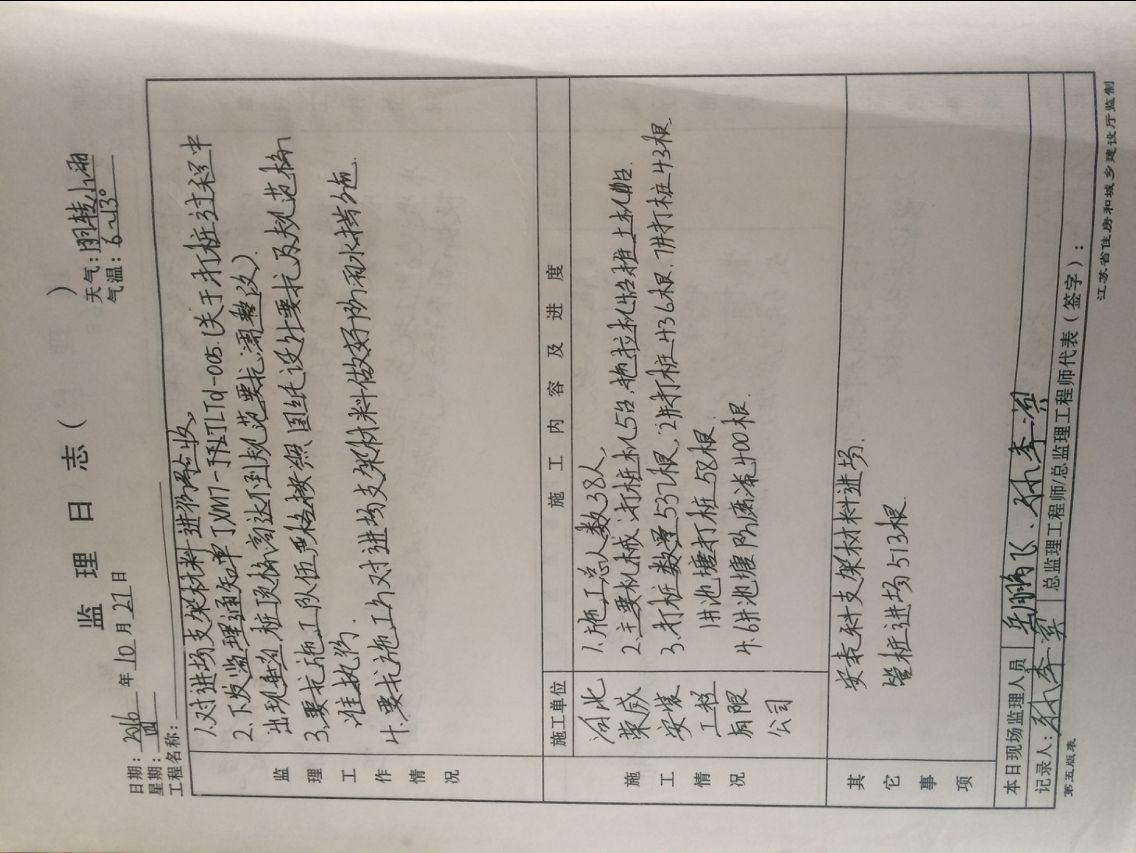 监 理 日 志 (          )
日期: 2016 年 10 月 27 日
天气: 阴转小雨
星期: 四
气温: 6~13°
工程名称:
监理工作情况
1.对进场支架材料进行验收。
2.下发监理通知单JXM7-FLJLTd-005.(关于打桩过程中
出现 桩顶标高达不到规范要求,需整改).
3.要求施工队伍严格按照图纸设计要求及规范标
准执行.
4.要求施工方对进场支架材料做好防雨水措施.
施工情况
施工单位
施 工 内 容 及 进 度
河北
荣威
安装
工程
有限
公司
1.施工总人数38人.
2.主要机械:打桩机5台,拖拉机4台,推土机1台.
3.打桩数量537根,2#打桩436根.7#打桩43根.
1#池塘打桩58根.
4.6#池塘防腐漆400根.
其它事项
安泰科支架材料进场.
管桩进场513根.
本日现场监理人员
鹏飞、孙季
记录人: 孙季
总监理工程师/总监理工程师代表(签字):
第五版表
江苏省住房和城乡建设厅监制